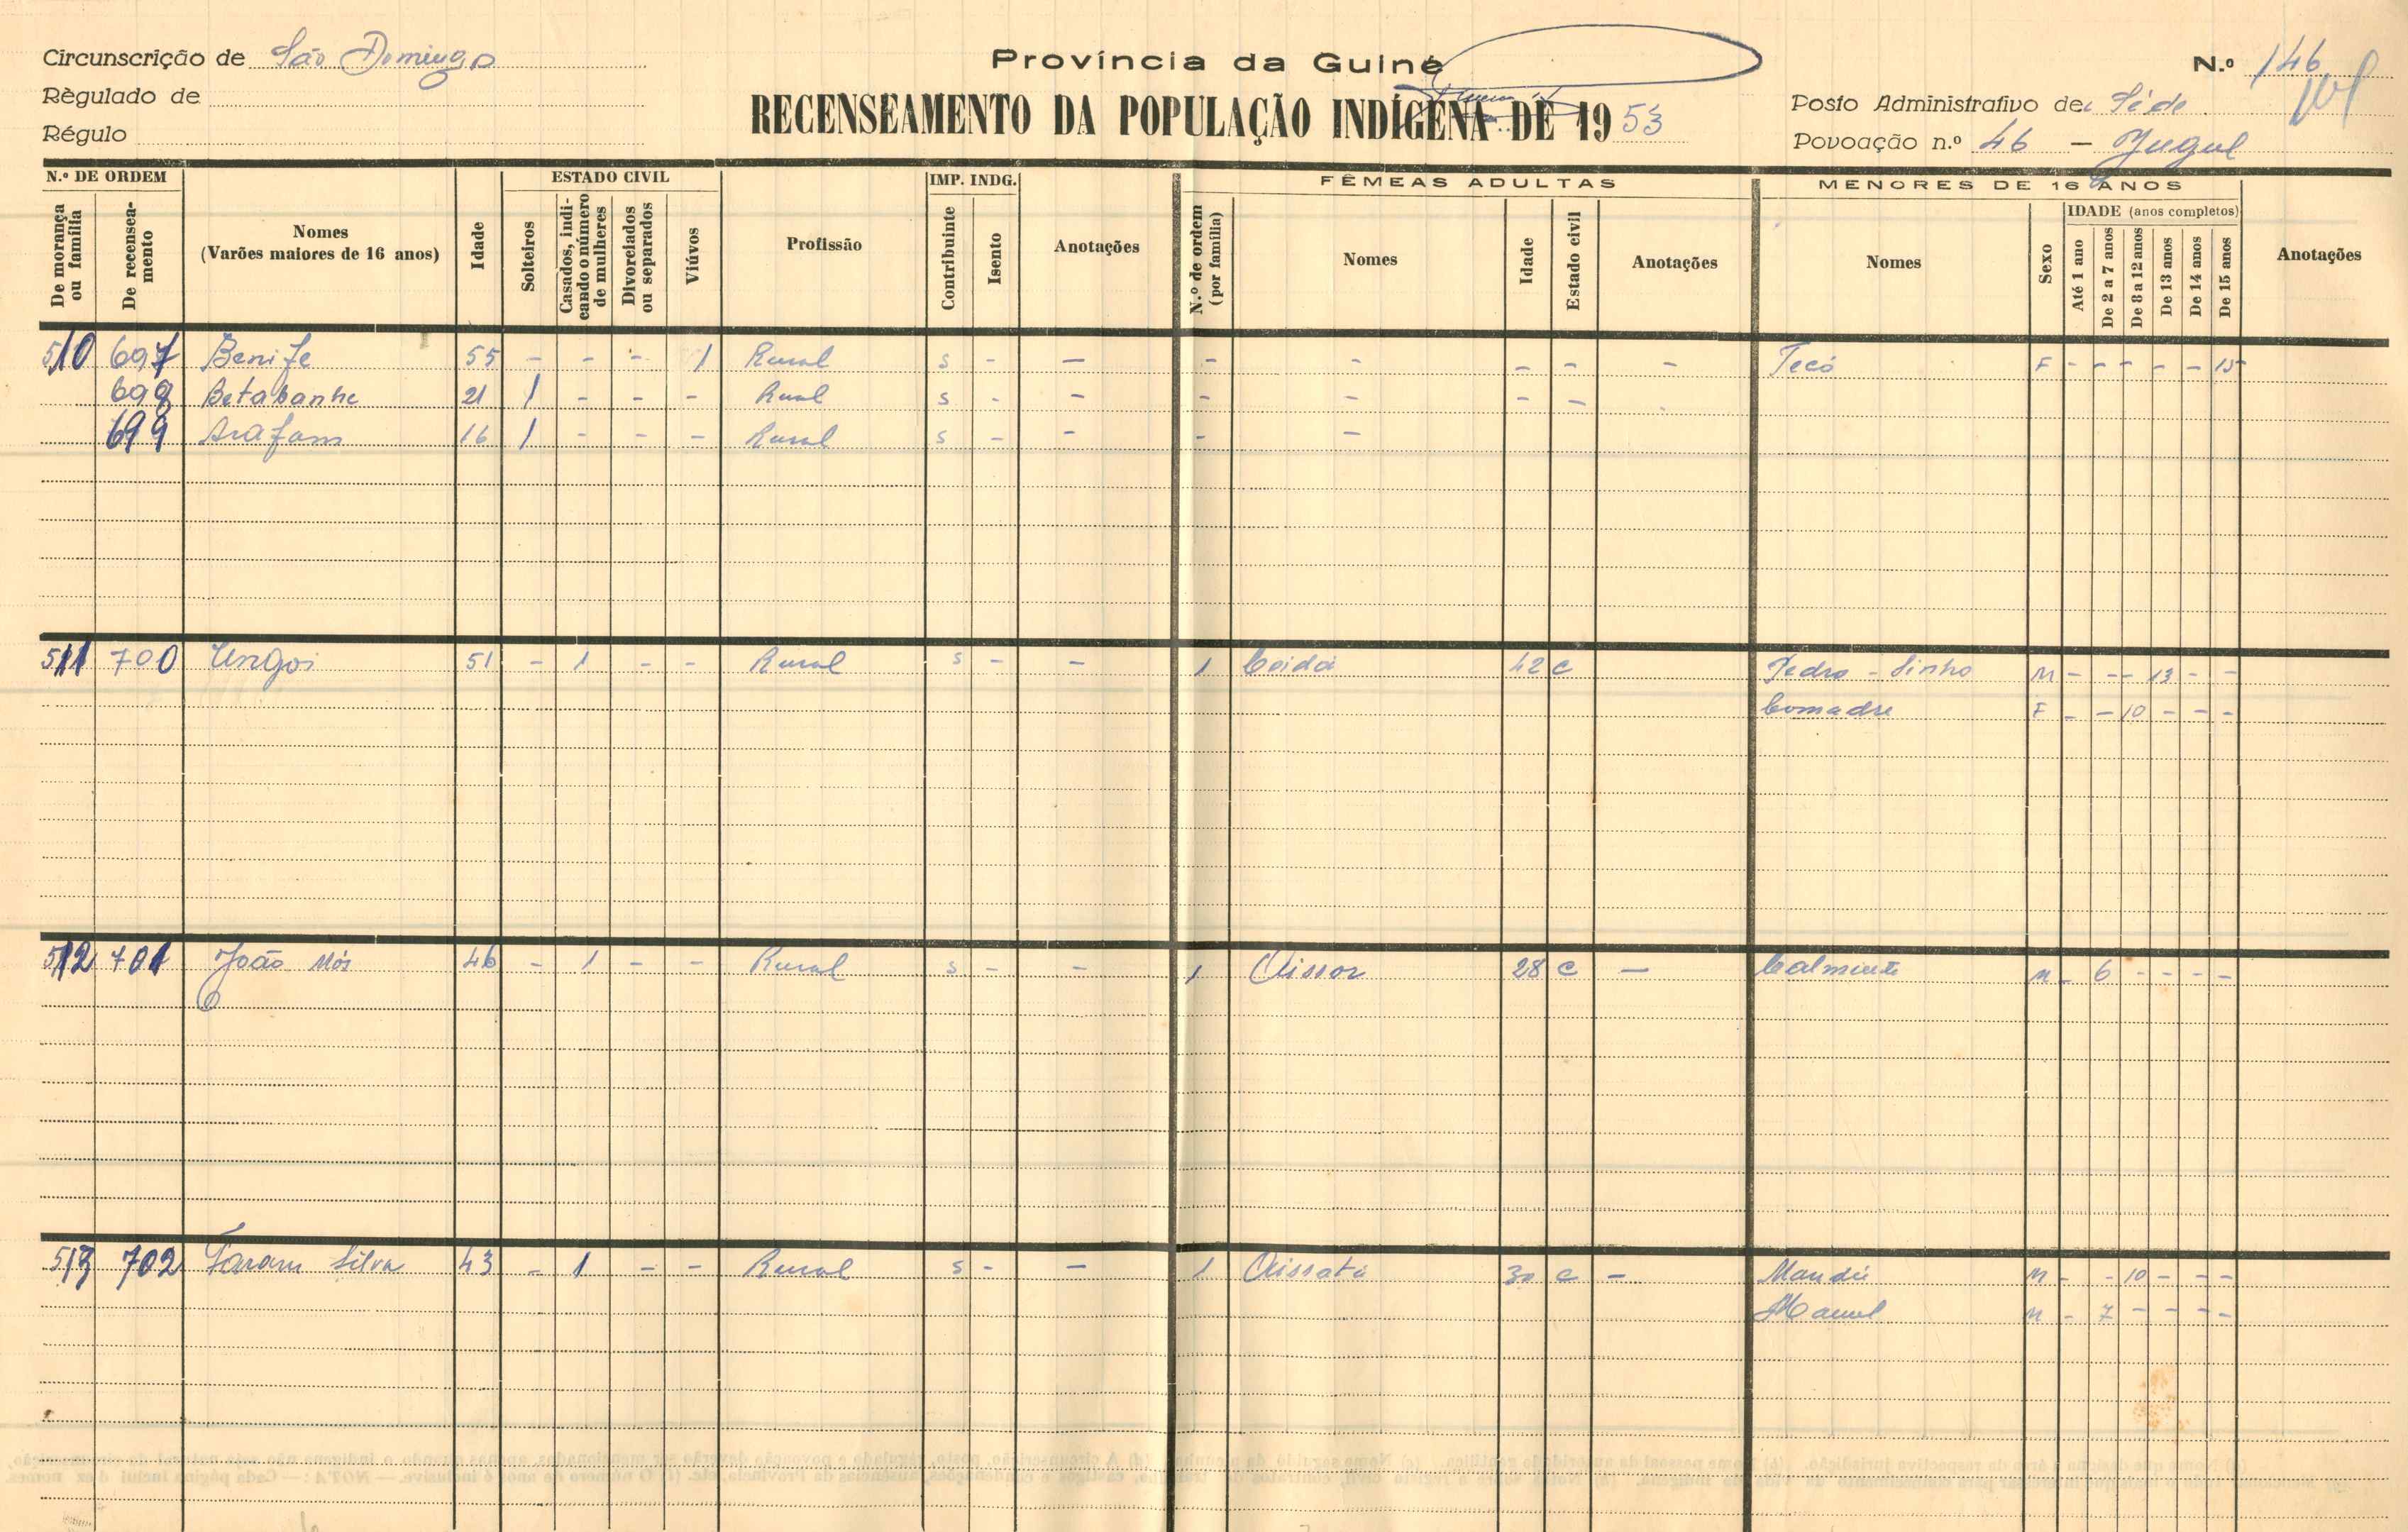 Circunscrição de São Domingo
Régulado de
Régulo
Província da Guiné
RECENSEAMENTO DA POPULAÇÃO INDÍGENA DE 1953
N.º 146
Posto Administrativo de Séde
Povoação n.º 46 - Jugul
N.º DE ORDEM
De morança ou família
De recenseamento
Nomes
(Varões maiores de 16 anos)
Idade
ESTADO CIVIL
Solteiros
Casados, indicando o número de mulheres
Divorciados ou separados
Viúvos
Profissão
IMP. INDG.
Contribuinte
Isento
Anotações
FÊMEAS ADULTAS
N.º de ordem (por família)
Nomes
Idade
Estado civil
Anotações
MENORES DE 16 ANOS
Nomes
Sexo
IDADE (anos completos)
Até 1 ano
De 2 a 7 anos
De 8 a 12 anos
De 13 anos
De 14 anos
De 15 anos
Anotações
510 697 Benife 55 - - - 1 Rural s - - - - - - - Tecó F - - - - - 15
698 Betabanhe 21 1 - - - Rural s - - - - - -
699 Arafam 16 1 - - - Rural s - - - -
511 700 Ungoi 51 - 1 - - Rural s - - 1 Coida 42 C Pedro - Sinho M - - - 13 - -
Comadre F - - 10 - - -
512 701 João Mós 46 - 1 - - Rural s - - 1 Aissor 28 C - Calmiute M - 6 - - - -
513 702 Faram Silva 43 - 1 - - Rural s - - 1 Aissatá 30 C - Mandú M - - 10 - - -
Manuel M - 7 - - - -